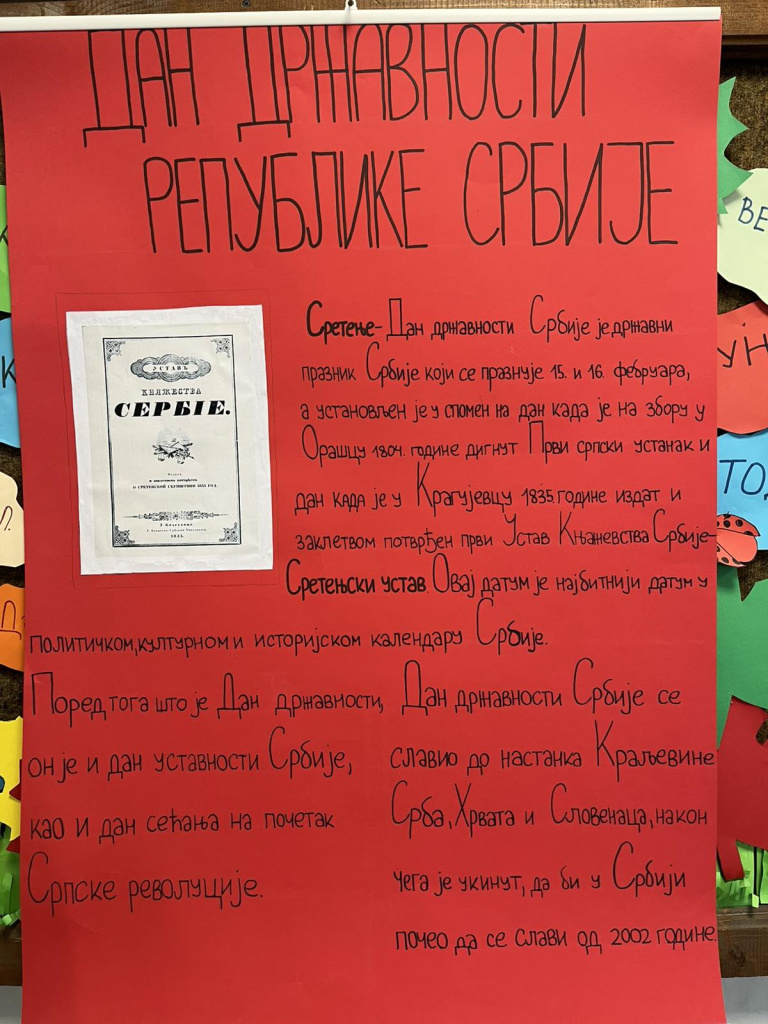 ДАН ДРЖАВНОСТИ
РЕПУБЛИКЕ СРБИЈЕ
УСТАВЪ
КНЯЖЕСТВА
СЕРБІЕ.
О СРЕТЕНСКОЙ СКУПШТИНИ 1835 ГОД.
1835.
Сретење-Дан државности Србије је државни
празник Србије који се празнује 15. и 16. фебруара,
а установљен је у спомен на дан када је на збору у
Орашцу 1804. године дигнут Први српски устанак и
дан када је у Крагујевцу 1835. године издат и
заклетвом потврђен први Устав Књажевства Србије-
Сретењски устав. Овај датум је најбитнији датум у
политичком, културном и историјском календару Србије.
Поред тога што је Дан државности,
он је и дан уставности Србије,
као и дан сећања на почетак
Српске револуције.
Дан државности Србије се
славио до настанка Краљевине
Срба, Хрвата и Словенаца, након
чега је укинут, да би у Србији
почео да се слави од 2002 године.
ВЕ
УН
ТОД
К
Л.